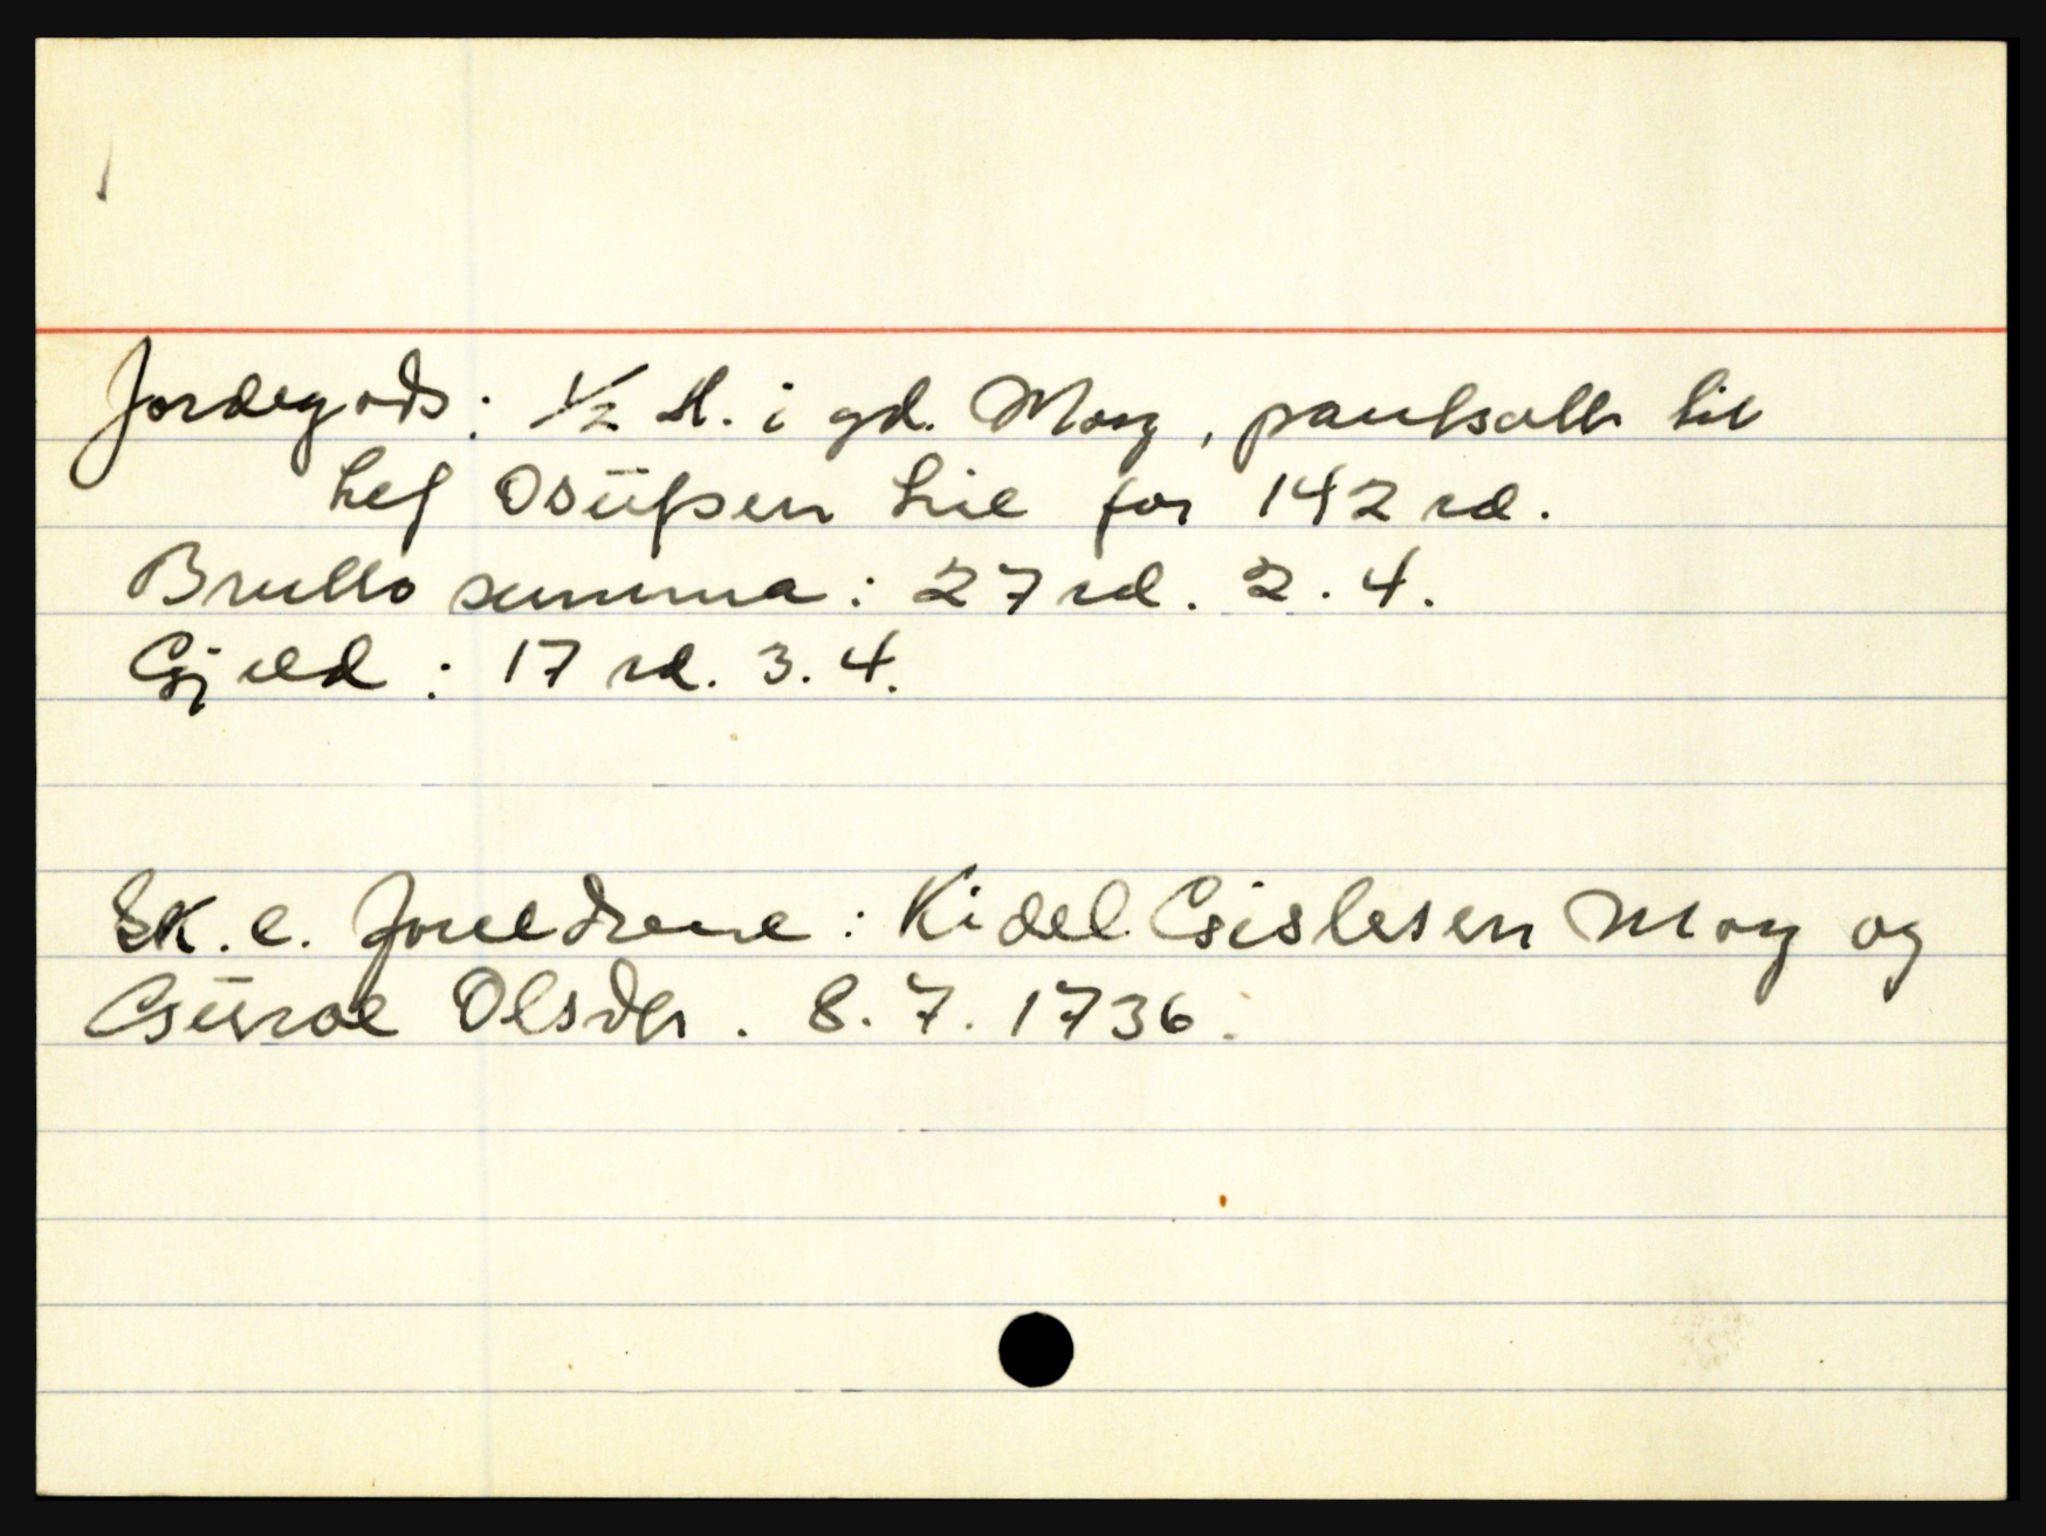 Jordegods: 1/2 hl. i gd. Mosg, pantsatt til
Lef Osüfsen Lie for 142 rd.
Brutto summa: 27 rd. 2. 4.
Gjeld: 17 rd. 3. 4.
Sk. e. foreldrene: Kidel Gislesen Mosg og
Güroe Olsdtr. 8. 7. 1736.